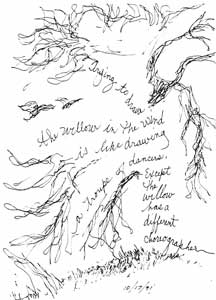 Trying to draw
the willow in the wind
is like drawing
a troupe of dancers.
Except
the
willow
has a
different
choreographer